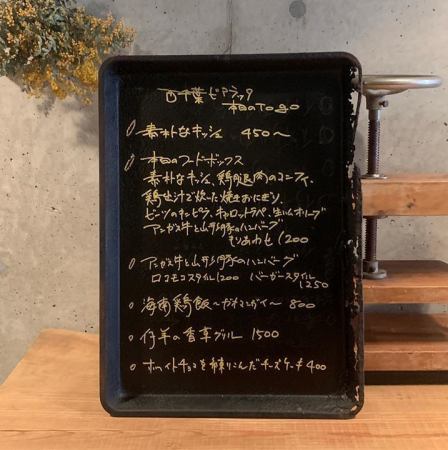 西千葉ビアラック
本日のTo go
素朴なキッシュ 450〜
本日のフードボックス
素朴なキッシュ、鶏腿肉のコンフィ、
鶏出汁で炊いた焼きおにぎり、
ビーツのキンピラ、キャロットラペ、生ハムオリーブ
アンガス牛と山形豚のハンバーグ
もりあわせ 1200
アンガス牛と山形豚のハンバーグ
ロコモコスタイル1200 バーガースタイル
1250
海南鶏飯〜ガオマンガイ〜 800
仔羊の香草グリル 1500
ホワイトチョコを練りこんだチーズケーキ400